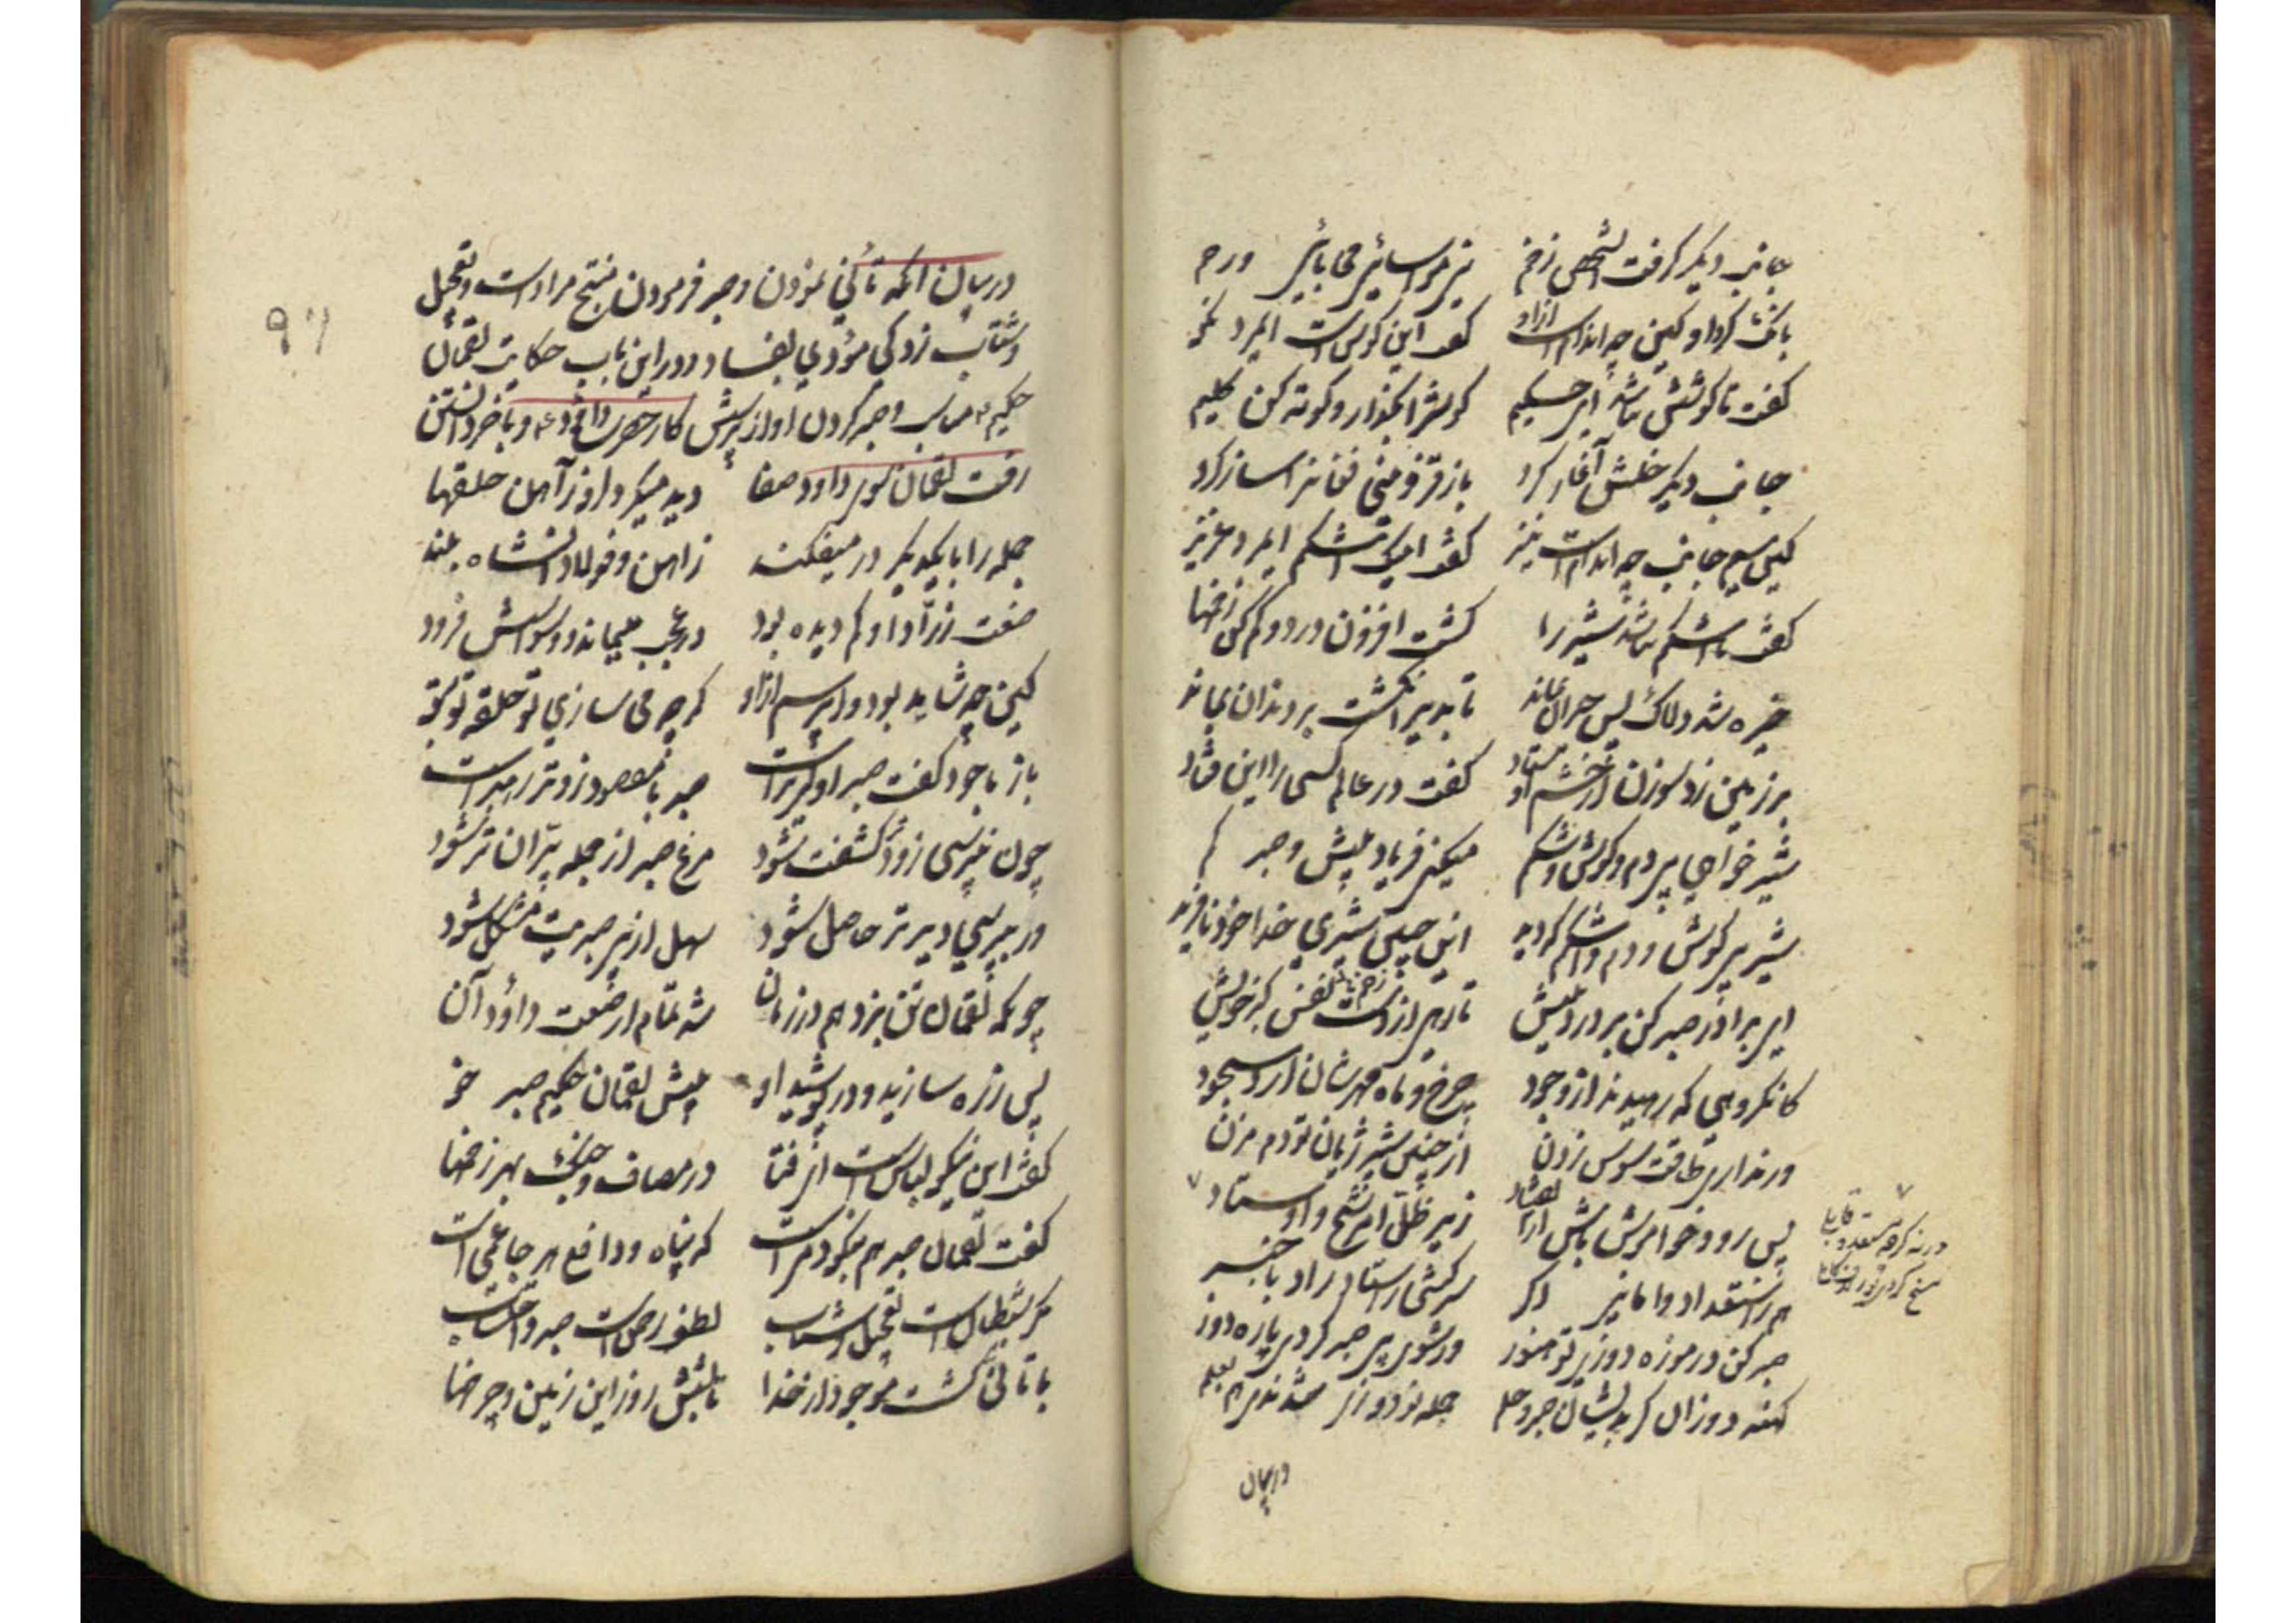 جانب دیگر گرفت آن شخص زخم بی مواسائی بی محابائی و رحم
بانگ کرد او کین چه اندامست ازو گفت این گوشست ای مرد نکو
گفت تا گوشش نباشد ای حکیم گوش را بگذار و کوته کن گلیم
جانب دیگر خلش آغاز کرد باز قزوینی فغانرا ساز کرد
کین سیم جانب چه اندامست نیز گفت اینست اشکم ای مرد عزیز
گفت تا اشکم نباشد شیر را گشت افزون درد کم کن زخمها
خیره شد دلاک بس حیران بماند تا بدیر انگشت بر دندان بماند
بر زمین زد سوزن از خشم اوستاد گفت در عالم کسی را این فتاد
شیر خواهی بی دم و گوش و شکم میکنی فریاد پیش و صبر کم
شیر بی گوش و دم و اشکم که دید این چنین شیری خدا خود نافرید
ای برادر صبر کن بر درد نیش تا رهی از نفس گبر خویش
کان گروهی که رهیدند از وجود چرخ و ماه و مهرشان آرد سجود
ور نداری طاقت سوزن زدن از چنین شیر ژیان تو دم مزن
پس رو و خاموش باش از انقیاد زیر ظل امر شیخ و اوستاد
ورنه گرچه مستعد و قابلی
مسخ گردی
هم ز استعداد وا مانی اگر سرکشی ز استاد راد با خبر
صبر کن در موزه دوزی تو هنوز ور شوی بی صبر گردی پاره دوز
کهنه دوزان گر بدیشان صبر و حلم جمله نو دوزان شدندی هم بعلم
در بیان
۹۷
در بیان آنکه تأنی نمودن و صبر فرمودن منتج مرادست و تعجیل
و شتاب زدگی مؤدی بفساد و در این باب حکایت لقمان
حکیم و صبر کردن او از پرسش کار حضرت داود ع و بآخر دانستن
رفت لقمان سوی داود صفا دید میکرد او ز آهن حلقها
جمله را با یکدیگر در میفکند ز آهن و فولاد آن شاه بلند
صنعت زراد او کم دیده بود در عجب میماند و وسواسش فزود
کین چه شاید بود وا پرسم ازو که چه می سازی تو حلقه تو بتو
باز با خود گفت صبر اولیترست صبر با مقصود زودتر رهبرست
چون نپرسی زودتر کشفت شود مرغ صبر از جمله پران تر شود
ور بپرسی دیرتر حاصل شود سهل از بی صبریت مشکل شود
چونکه لقمان تن بزد هم در زمان شد تمام از صنعت داود آن
پس زره سازید و در پوشید او پیش لقمان حکیم صبر خو
گفت این نیکو لباسست ای فتا در مصاف و جنگ بهر زخمها
گفت لقمان صبر هم نیکو دمیست که پناه و دافع هر جا غمیست
مکر شیطانست تعجیل و شتاب لطف رحمانست صبر و احتساب
با تأنی گشت موجود از خدا تا بشش روز این زمین و چرخها